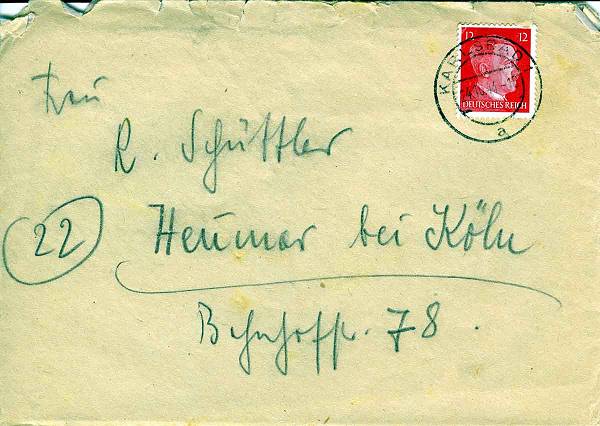 12 12
KARLSBAD
DEUTSCHES REICH
a
Frau
R. Schüttler
(22) Heumar bei Köln
Bahnhofstr. 78.